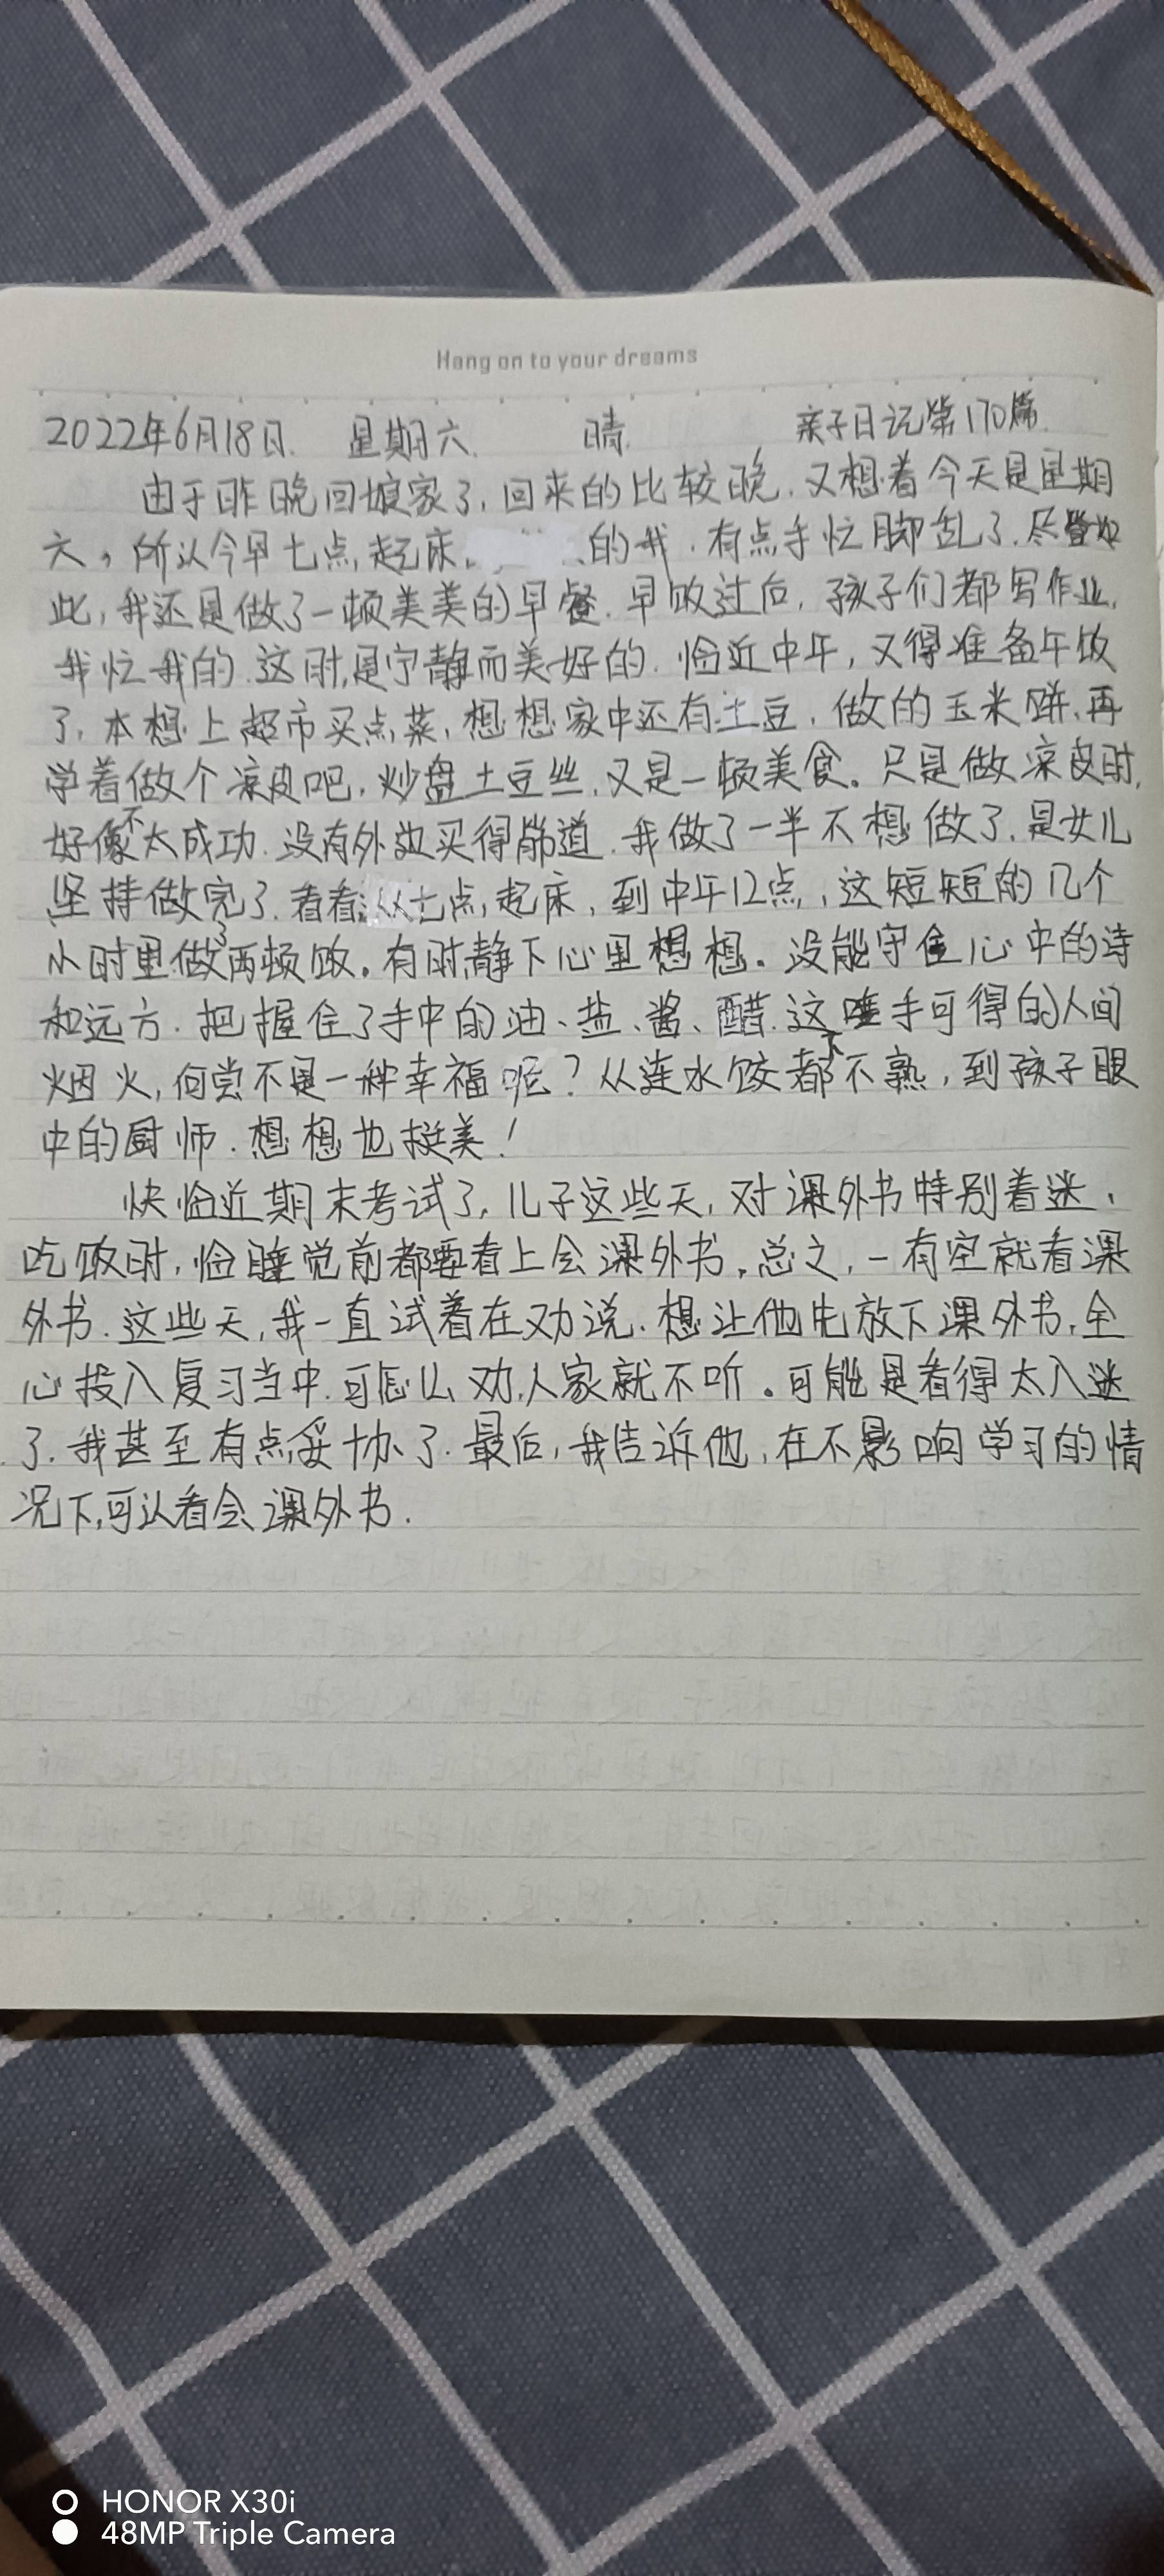 Hang on to your dreams
2022年6月18日. 星期六. 晴. 亲子日记第170篇.
由于昨晚回娘家了,回来的比较晚.又想着今天是星期
六,所以今早七点,起床.的我.有点手忙脚乱了.尽管如
此,我还是做了一顿美美的早餐.早饭过后,孩子们都写作业,
我忙我的.这时,是宁静而美好的.临近中午,又得准备午饭
了,本想上超市买点菜,想想家中还有土豆,做的玉米饼、再
学着做个凉皮吧,炒盘土豆丝,又是一顿美食。只是做凉皮时,
好像不太成功.没有外边买得筋道.我做了一半不想做了.是女儿
坚持做完了.看看从七点,起床,到中午12点,这短短的几个
小时里做了两顿饭。有时静下心里想想。没能守住心中的诗
和远方.把握住了手中的油、盐、酱、醋.这唾手可得的人间
烟火,何尝不是一种幸福呢?从连水饺都下不熟,到孩子眼
中的厨师.想想也挺美!
快临近期末考试了,儿子这些天,对课外书特别着迷,
吃饭时,临睡觉前都要看上会课外书.总之,一有空就看课
外书.这些天,我一直试着在劝说.想让他先放下课外书,全
心投入复习当中.可怎么劝,人家就不听。可能是看得太入迷
了.我甚至有点妥协了.最后,我告诉他,在不影响学习的情
况下,可以看会课外书.
HONOR X30i
48MP Triple Camera